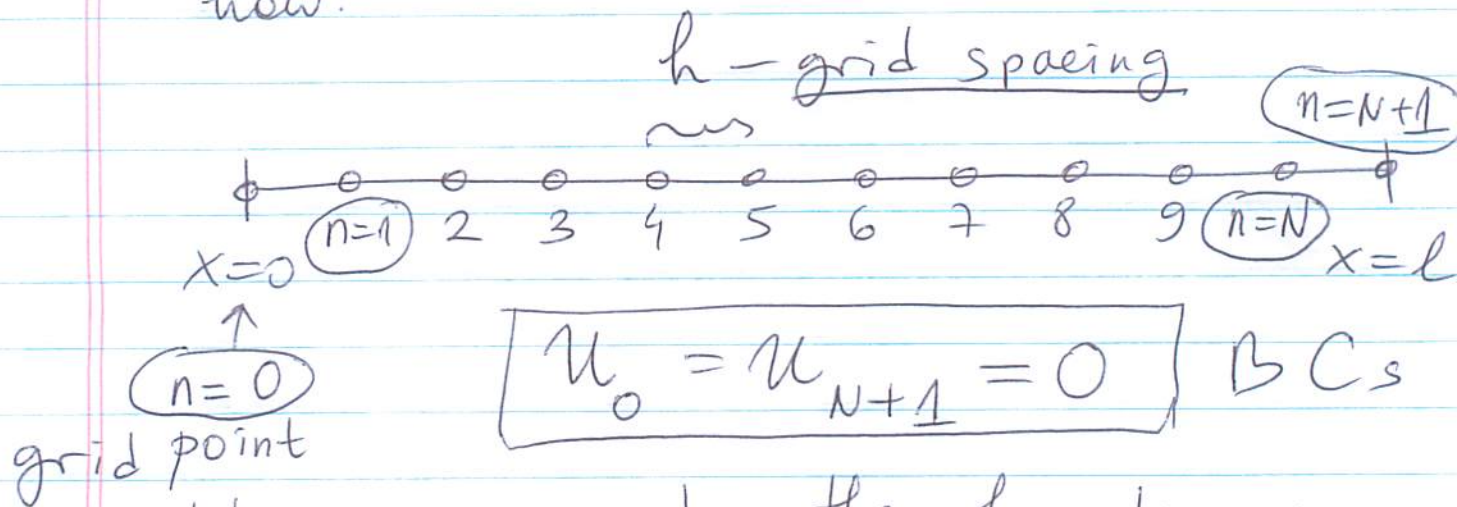 now.
h – grid spacing
n=N+1
n=1 2 3 4 5 6 7 8 9 n=N
x=0 x=l
n=0 u_0 = u_{N+1} = 0 BCs
grid point